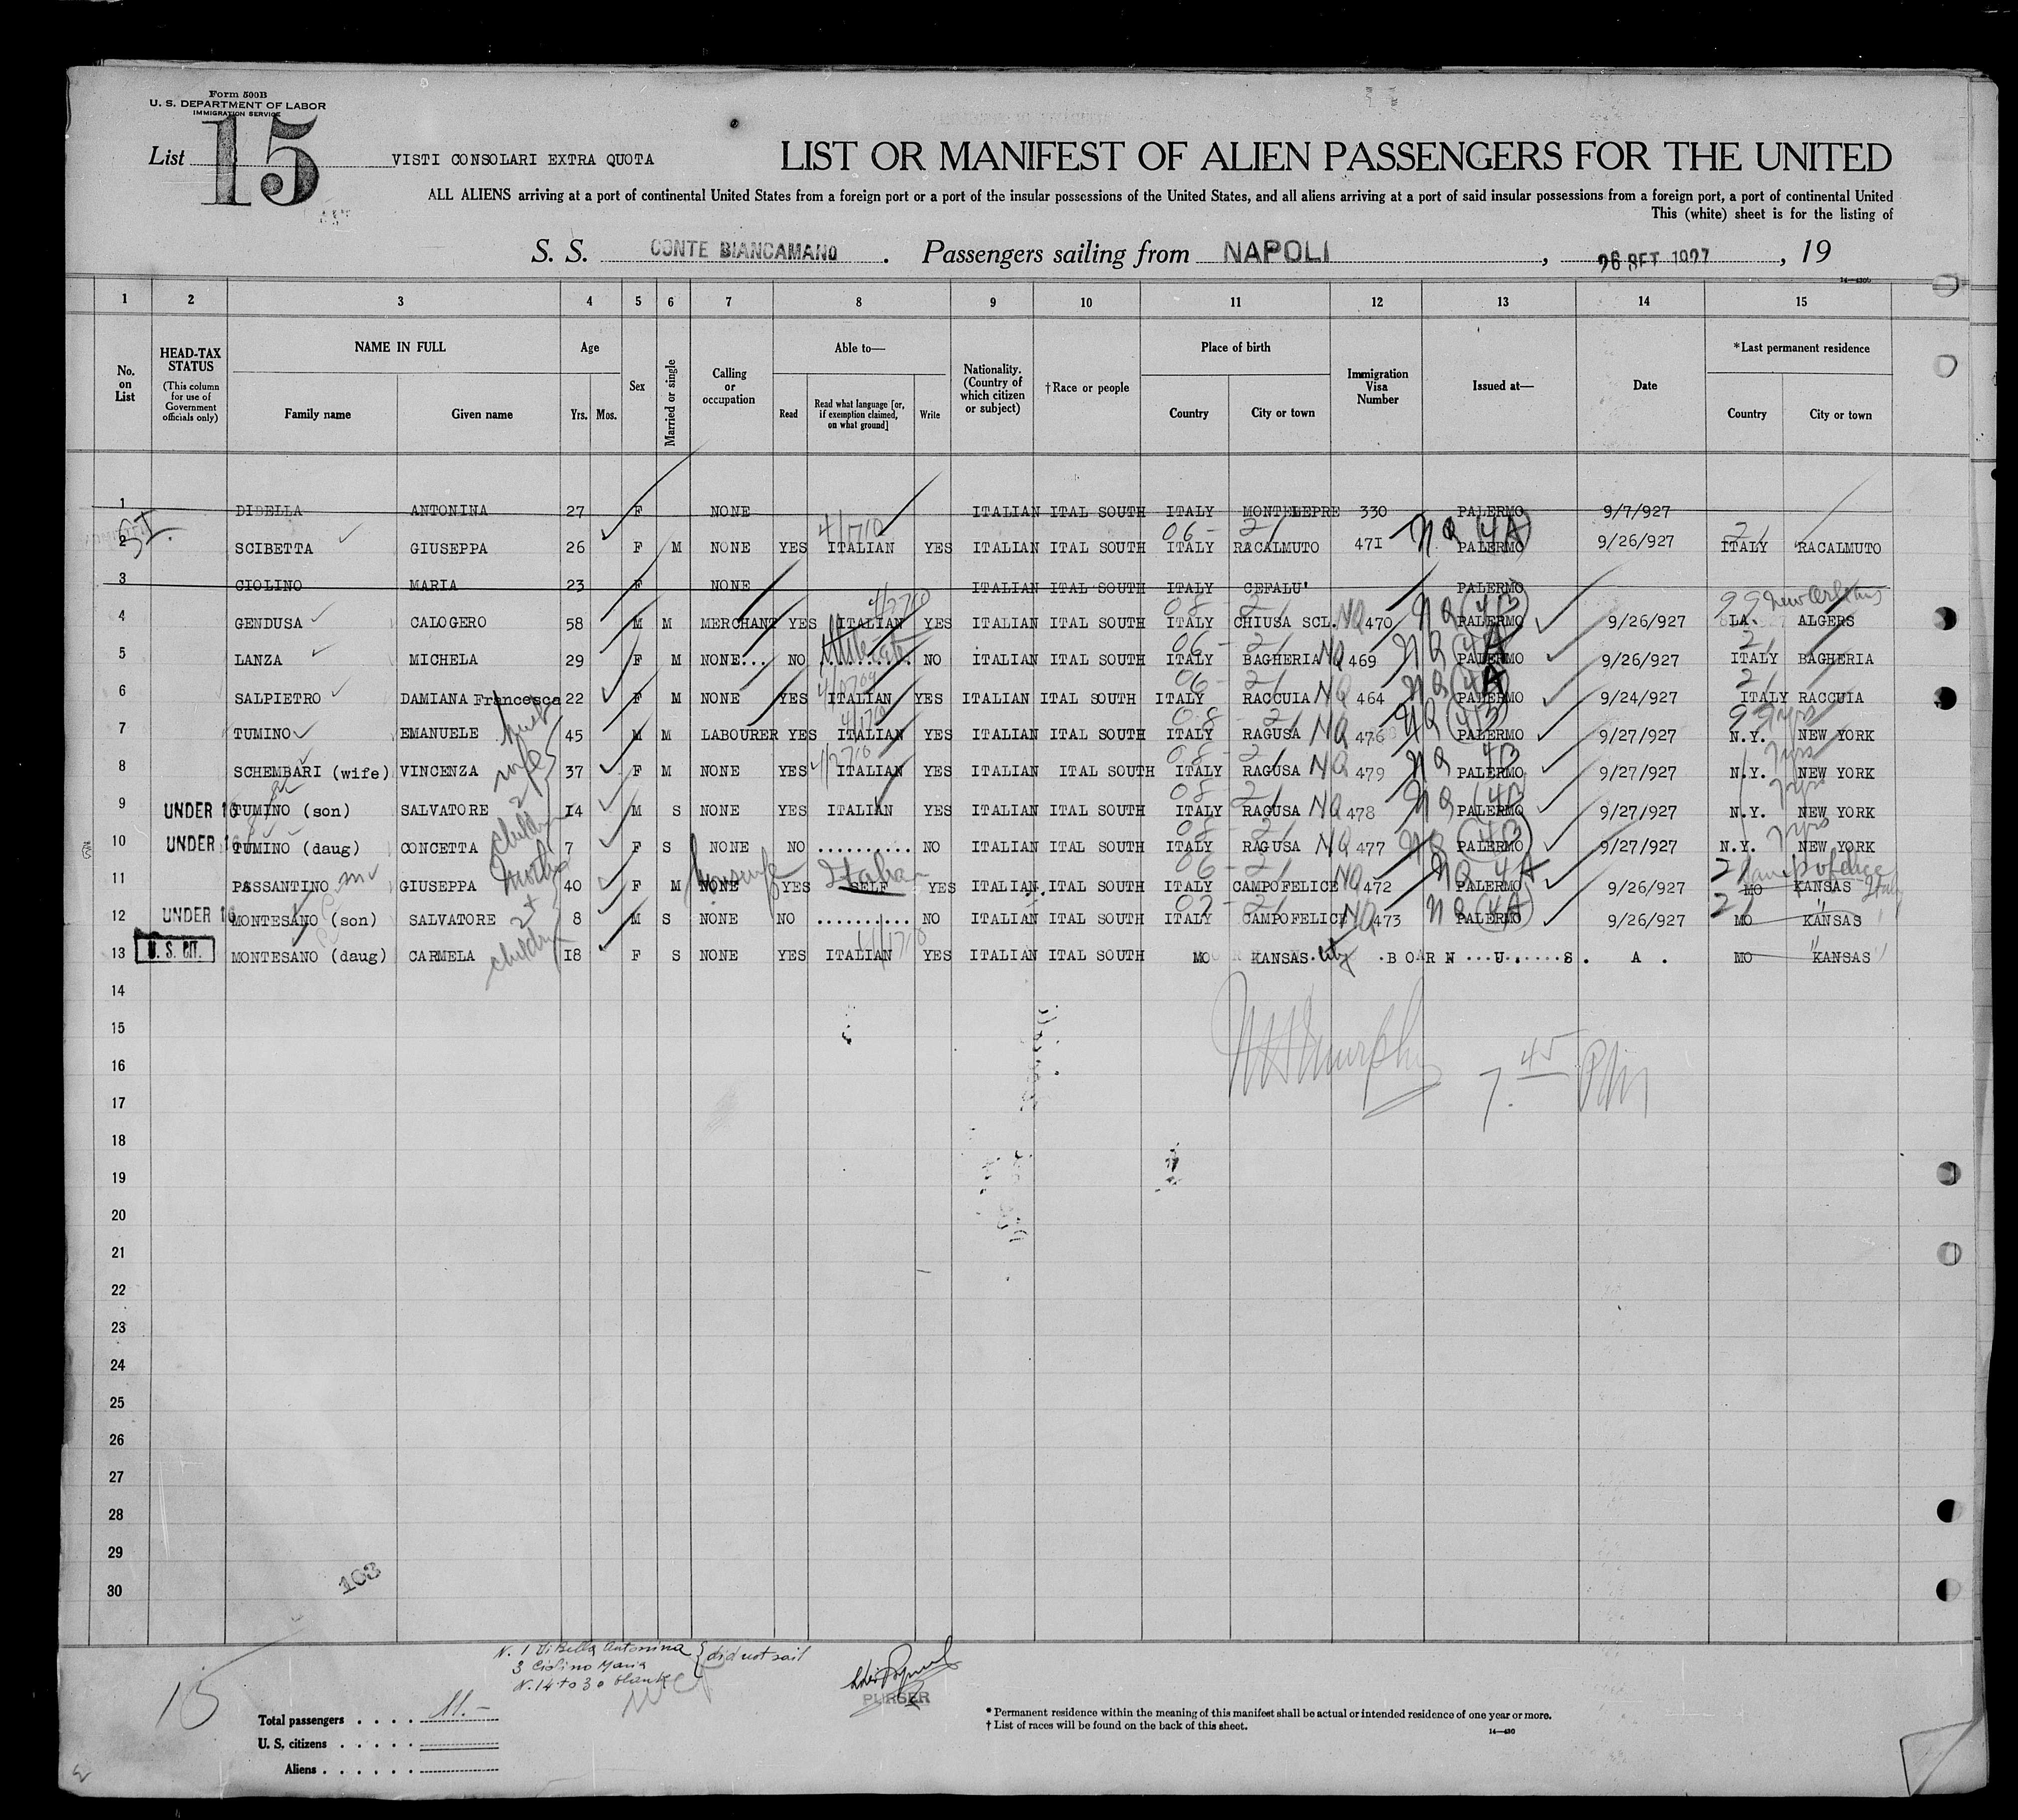 Form 500B
U. S. DEPARTMENT OF LABOR
IMMIGRATION SERVICE
List 15 VISTI CONSOLARI EXTRA QUOTA
LIST OR MANIFEST OF ALIEN PASSENGERS FOR THE UNITED
ALL ALIENS arriving at a port of continental United States from a foreign port or a port of the insular possessions of the United States, and all aliens arriving at a port of said insular possessions from a foreign port, a port of continental United
This (white) sheet is for the listing of
S. S. CONTE BIANCAMANO . Passengers sailing from NAPOLI , 26 SET 1927 , 19
14—430b
1 2 3 4 5 6 7 8 9 10 11 12 13 14 15
No. on List
HEAD-TAX STATUS (This column for use of Government officials only)
NAME IN FULL
Family name Given name
Age
Yrs. Mos.
Sex
Married or single
Calling or occupation
Able to—
Read Read what language [or, if exemption claimed, on what ground] Write
Nationality. (Country of which citizen or subject)
†Race or people
Place of birth
Country City or town
Immigration Visa Number
Issued at—
Date
*Last permanent residence
Country City or town
1 DIBELLA ANTONINA 27 F NONE ITALIAN ITAL SOUTH ITALY MONTELEPRE 330 PALERMO 9/7/927
SI
2 SCIBETTA GIUSEPPA 26 F M NONE YES ITALIAN YES ITALIAN ITAL SOUTH ITALY RACALMUTO 471 NQ 4A PALERMO 9/26/927 ITALY RACALMUTO
3 CIOLINO MARIA 23 F NONE ITALIAN ITAL SOUTH ITALY CEFALU' PALERMO
4 GENDUSA CALOGERO 58 M M MERCHANT YES ITALIAN YES ITALIAN ITAL SOUTH ITALY CHIUSA SCL. NQ 470 NQ 4B PALERMO 9/26/927 LA. ALGERS New Orleans
5 LANZA MICHELA 29 F M NONE... NO .......... NO ITALIAN ITAL SOUTH ITALY BAGHERIA NQ 469 NQ 4A PALERMO 9/26/927 ITALY BAGHERIA
6 SALPIETRO DAMIANA Francesca 22 F M NONE YES ITALIAN YES ITALIAN ITAL SOUTH ITALY RACCUIA NQ 464 NQ 4A PALERMO 9/24/927 ITALY RACCUIA
7 TUMINO EMANUELE 45 M M LABOURER YES ITALIAN YES ITALIAN ITAL SOUTH ITALY RAGUSA NQ 476 NQ 4B PALERMO 9/27/927 N.Y. NEW YORK
8 SCHEMBARI (wife) VINCENZA wife 37 F M NONE YES ITALIAN YES ITALIAN ITAL SOUTH ITALY RAGUSA NQ 479 NQ 4B PALERMO 9/27/927 N.Y. NEW YORK
9 UNDER 16 TUMINO (son) SALVATORE 2 14 M S NONE YES ITALIAN YES ITALIAN ITAL SOUTH ITALY RAGUSA NQ 478 NQ 4B PALERMO 9/27/927 N.Y. NEW YORK
10 UNDER 16 TUMINO (daug) CONCETTA children 7 F S NONE NO .......... NO ITALIAN ITAL SOUTH ITALY RAGUSA NQ 477 NQ 4B PALERMO 9/27/927 N.Y. NEW YORK
11 PASSANTINO GIUSEPPA mother 40 F M NONE housewife YES SELF Italian YES ITALIAN ITAL SOUTH ITALY CAMPOFELICE NQ 472 NQ 4A PALERMO 9/26/927 MO KANSAS Campofelice Italy
12 UNDER 16 MONTESANO (son) SALVATORE 2 8 M S NONE NO .......... NO ITALIAN ITAL SOUTH ITALY CAMPOFELICE NQ 473 NQ 4A PALERMO 9/26/927 MO KANSAS "
13 U. S. CIT. MONTESANO (daug) CARMELA children 18 F S NONE YES ITALIAN YES ITALIAN ITAL SOUTH MO KANSAS City BOARN U. S. A. MO KANSAS "
14
15
16
17
18
19
20
21
22
23
24
25
26
27
28
29
30
7.45 PM
103
N. 1 Di Bella Antonina
3 Ciolino Maria
did not sail
N. 14 to 30 blank
PURSER
15
Total passengers . . . . 11.-
U. S. citizens . . . . .
Aliens . . . . . .
* Permanent residence within the meaning of this manifest shall be actual or intended residence of one year or more.
† List of races will be found on the back of this sheet.
14—430